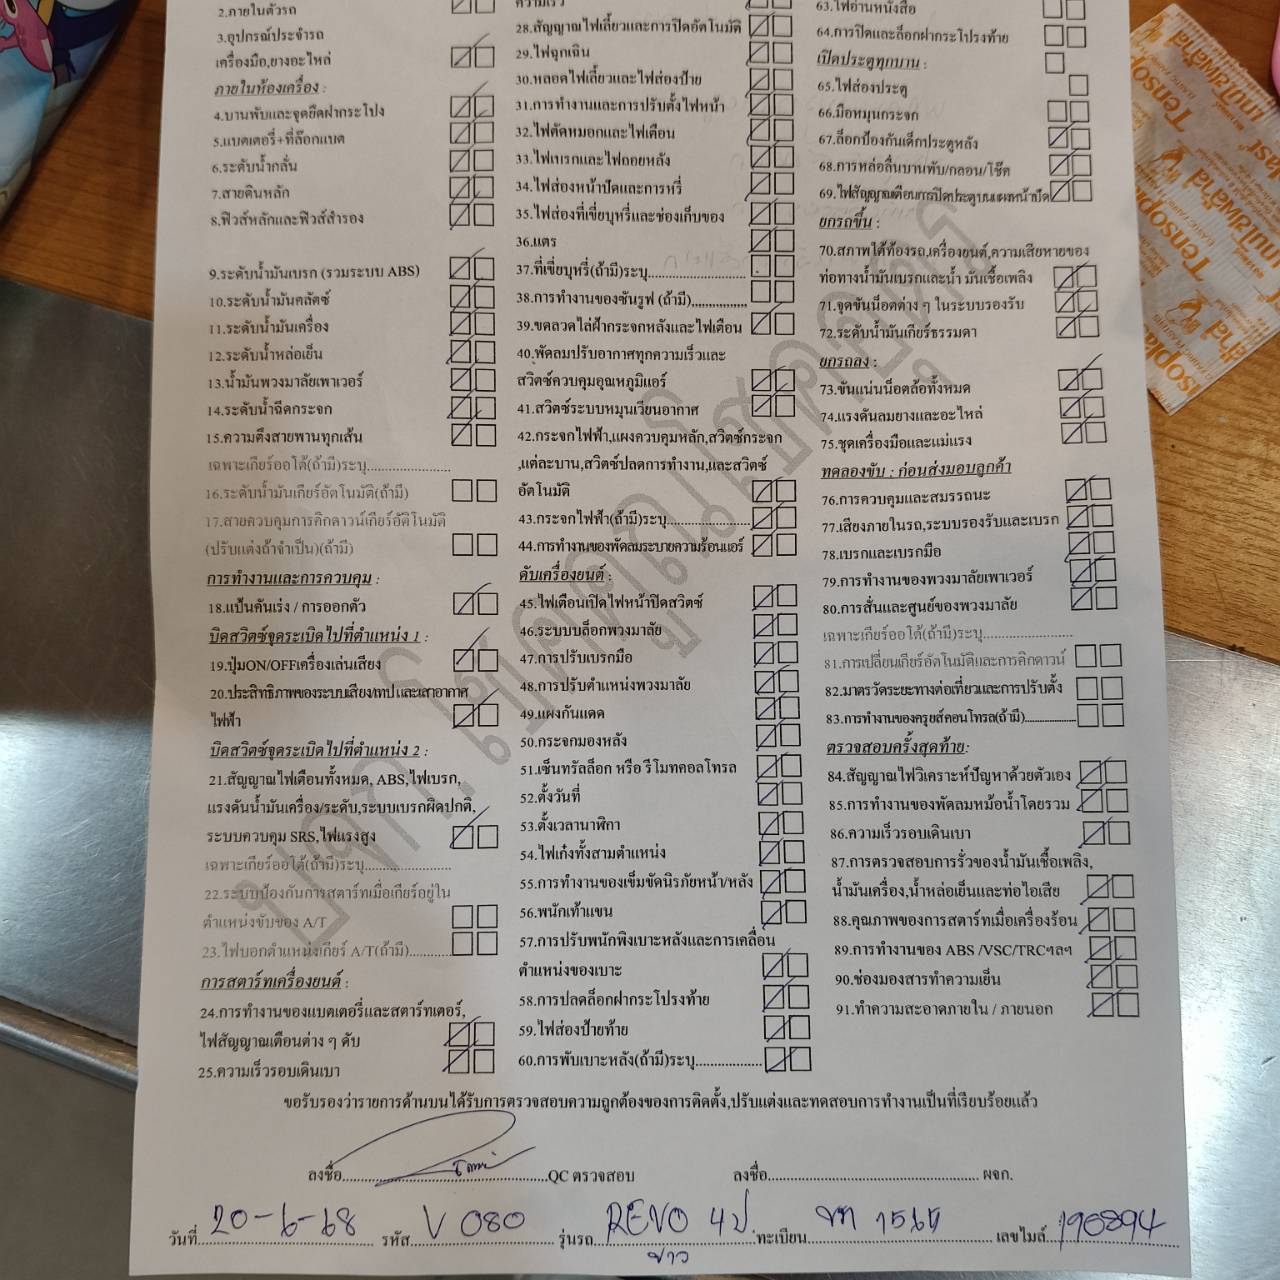 2.ภายในตัวรถ
3.อุปกรณ์ประจำรถ
เครื่องมือ,ยางอะไหล่
ภายในห้องเครื่อง :
4.บานพับและจุดยึดฝากระโปง
5.แบตเตอรี่+ที่ล๊อกแบต
6.ระดับน้ำกลั่น
7.สายดินหลัก
8.ฟิวส์หลักและฟิวส์สำรอง
9.ระดับน้ำมันเบรก (รวมระบบ ABS)
10.ระดับน้ำมันคลัตช์
11.ระดับน้ำมันเครื่อง
12.ระดับน้ำหล่อเย็น
13.น้ำมันพวงมาลัยเพาเวอร์
14.ระดับน้ำฉีดกระจก
15.ความตึงสายพานทุกเส้น
เฉพาะเกียร์ออโต้(ถ้ามี)ระบุ......................
16.ระดับน้ำมันเกียร์อัตโนมัติ(ถ้ามี)
17.สายควบคุมการคิกดาวน์เกียร์อัติโนมัติ
(ปรับแต่งถ้าจำเป็น)(ถ้ามี)
การทำงานและการควบคุม :
18.แป้นคันเร่ง / การออกตัว
บิดสวิตซ์จุดระเบิดไปที่ตำแหน่ง 1 :
19.ปุ่มON/OFFเครื่องเล่นเสียง
20.ประสิทธิภาพของระบบเสียง/เทป และเสาอากาศ
ไฟฟ้า
บิดสวิตซ์จุดระเบิดไปที่ตำแหน่ง 2 :
21.สัญญาณไฟเตือนทั้งหมด, ABS,ไฟเบรก,
แรงดันน้ำมันเครื่อง/ระดับ,ระบบเบรกผิดปกติ,
ระบบควบคุม SRS,ไฟแรงสูง
เฉพาะเกียร์ออโต้(ถ้ามี)ระบุ......................
22.ระบบป้องกันการสตาร์ทเมื่อเกียร์อยู่ใน
ตำแหน่งขับของ A/T
23.ไฟบอกตำแหน่งเกียร์ A/T(ถ้ามี)...........
การสตาร์ทเครื่องยนต์ :
24.การทำงานของแบตเตอรี่และสตาร์ทเตอร์,
ไฟสัญญาณเตือนต่าง ๆ ดับ
25.ความเร็วรอบเดินเบา
ความเร็ว
28.สัญญาณไฟเลี้ยวและการปิดอัตโนมัติ
29.ไฟฉุกเฉิน
30.หลอดไฟเลี้ยวและไฟส่องป้าย
31.การทำงานและการปรับตั้งไฟหน้า
32.ไฟตัดหมอกและไฟเตือน
33.ไฟเบรกและไฟถอยหลัง
34.ไฟส่องหน้าปัดและการหรี่
35.ไฟส่องที่เขี่ยบุหรี่และช่องเก็บของ
36.แตร
37.ที่เขี่ยบุหรี่(ถ้ามี)ระบุ.........................
38.การทำงานของซันรูฟ (ถ้ามี)................
39.ขดลวดไล่ฝ้ากระจกหลังและไฟเตือน
40.พัดลมปรับอากาศทุกความเร็วและ
สวิตช์ควบคุมอุณหภูมิแอร์
41.สวิตช์ระบบหมุนเวียนอากาศ
42.กระจกไฟฟ้า,แผงควบคุมหลัก,สวิตช์กระจก
,แต่ละบาน,สวิตช์ปลดการทำงาน,และสวิตช์
อัตโนมัติ
43.กระจกไฟฟ้า(ถ้ามี)ระบุ......................
44.การทำงานของพัดลมระบายความร้อนแอร์
ดับเครื่องยนต์ :
45.ไฟเตือนเปิดไฟหน้าปิดสวิตซ์
46.ระบบบล็อกพวงมาลัย
47.การปรับเบรกมือ
48.การปรับตำแหน่งพวงมาลัย
49.แผงกันแดด
50.กระจกมองหลัง
51.เซ็นทรัลล็อก หรือ รีโมทคอลโทรล
52.ตั้งวันที่
53.ตั้งเวลานาฬิกา
54.ไฟเก๋งทั้งสามตำแหน่ง
55.การทำงานของเข็มขัดนิรภัยหน้า/หลัง
56.พนักเท้าแขน
57.การปรับพนักพิงเบาะหลังและการเคลื่อน
ตำแหน่งของเบาะ
58.การปลดล็อกฝากระโปรงท้าย
59.ไฟส่องป้ายท้าย
60.การพับเบาะหลัง(ถ้ามี)ระบุ..................
63.ไฟอ่านหนังสือ
64.การปิดและล็อกฝากระโปรงท้าย
เปิดประตูทุกบาน :
65.ไฟส่องประตู
66.มือหมุนกระจก
67.ล็อกป้องกันเด็กประตูหลัง
68.การหล่อลื่นบานทับ/กลอน/โช๊ค
69.ไฟสัญญาณเตือนการปิดประตูบนแผงหน้าปัด
ยกรถขึ้น :
70.สภาพใต้ท้องรถ,เครื่องยนต์,ความเสียหายของ
ท่อทางน้ำมันเบรกและน้ำ มันเชื้อเพลิง
71.จุดขันน็อตต่าง ๆ ในระบบรองรับ
72.ระดับน้ำมันเกียร์ธรรมดา
ยกรถลง :
73.ขันแน่นน็อตล้อทั้งหมด
74.แรงดันลมยางและอะไหล่
75.ชุดเครื่องมือและแม่แรง
ทดลองขับ : ก่อนส่งมอบลูกค้า
76.การควบคุมและสมรรถนะ
77.เสียงภายในรถ,ระบบรองรับและเบรก
78.เบรกและเบรกมือ
79.การทำงานของพวงมาลัยเพาเวอร์
80.การสั่นและศูนย์ของพวงมาลัย
เฉพาะเกียร์ออโต้(ถ้ามี)ระบุ......................
81.การเปลี่ยนเกียร์อัตโนมัติและการคิกดาวน์
82.มาตรวัดระยะทางต่อเที่ยวและการปรับตั้ง
83.การทำงานของครุยส์คอนโทรล(ถ้ามี)................
ตรวจสอบครั้งสุดท้าย:
84.สัญญาณไฟวิเคราะห์ปัญหาด้วยตัวเอง
85.การทำงานของพัดลมหม้อน้ำโดยรวม
86.ความเร็วรอบเดินเบา
87.การตรวจสอบการรั่วของน้ำมันเชื้อเพลิง,
น้ำมันเครื่อง,น้ำหล่อเย็นและท่อไอเสีย
88.คุณภาพของการสตาร์ทเมื่อเครื่องร้อน
89.การทำงานของ ABS /VSC/TRCฯลฯ
90.ช่องมองสารทำความเย็น
91.ทำความสะอาดภายใน / ภายนอก
ขอรับรองว่ารายการด้านบนได้รับการตรวจสอบความถูกต้องของการติดตั้ง,ปรับแต่งและทดสอบการทำงานเป็นที่เรียบร้อยแล้ว
ลงชื่อ..................................................QC ตรวจสอบ ลงชื่อ.................................................... ผจก.
วันที่ 20-6-68 รหัส V 080 รุ่นรถ REVO 4ป. ทะเบียน 1565 เลขไมล์ 190894
ขาว
Tensoplast